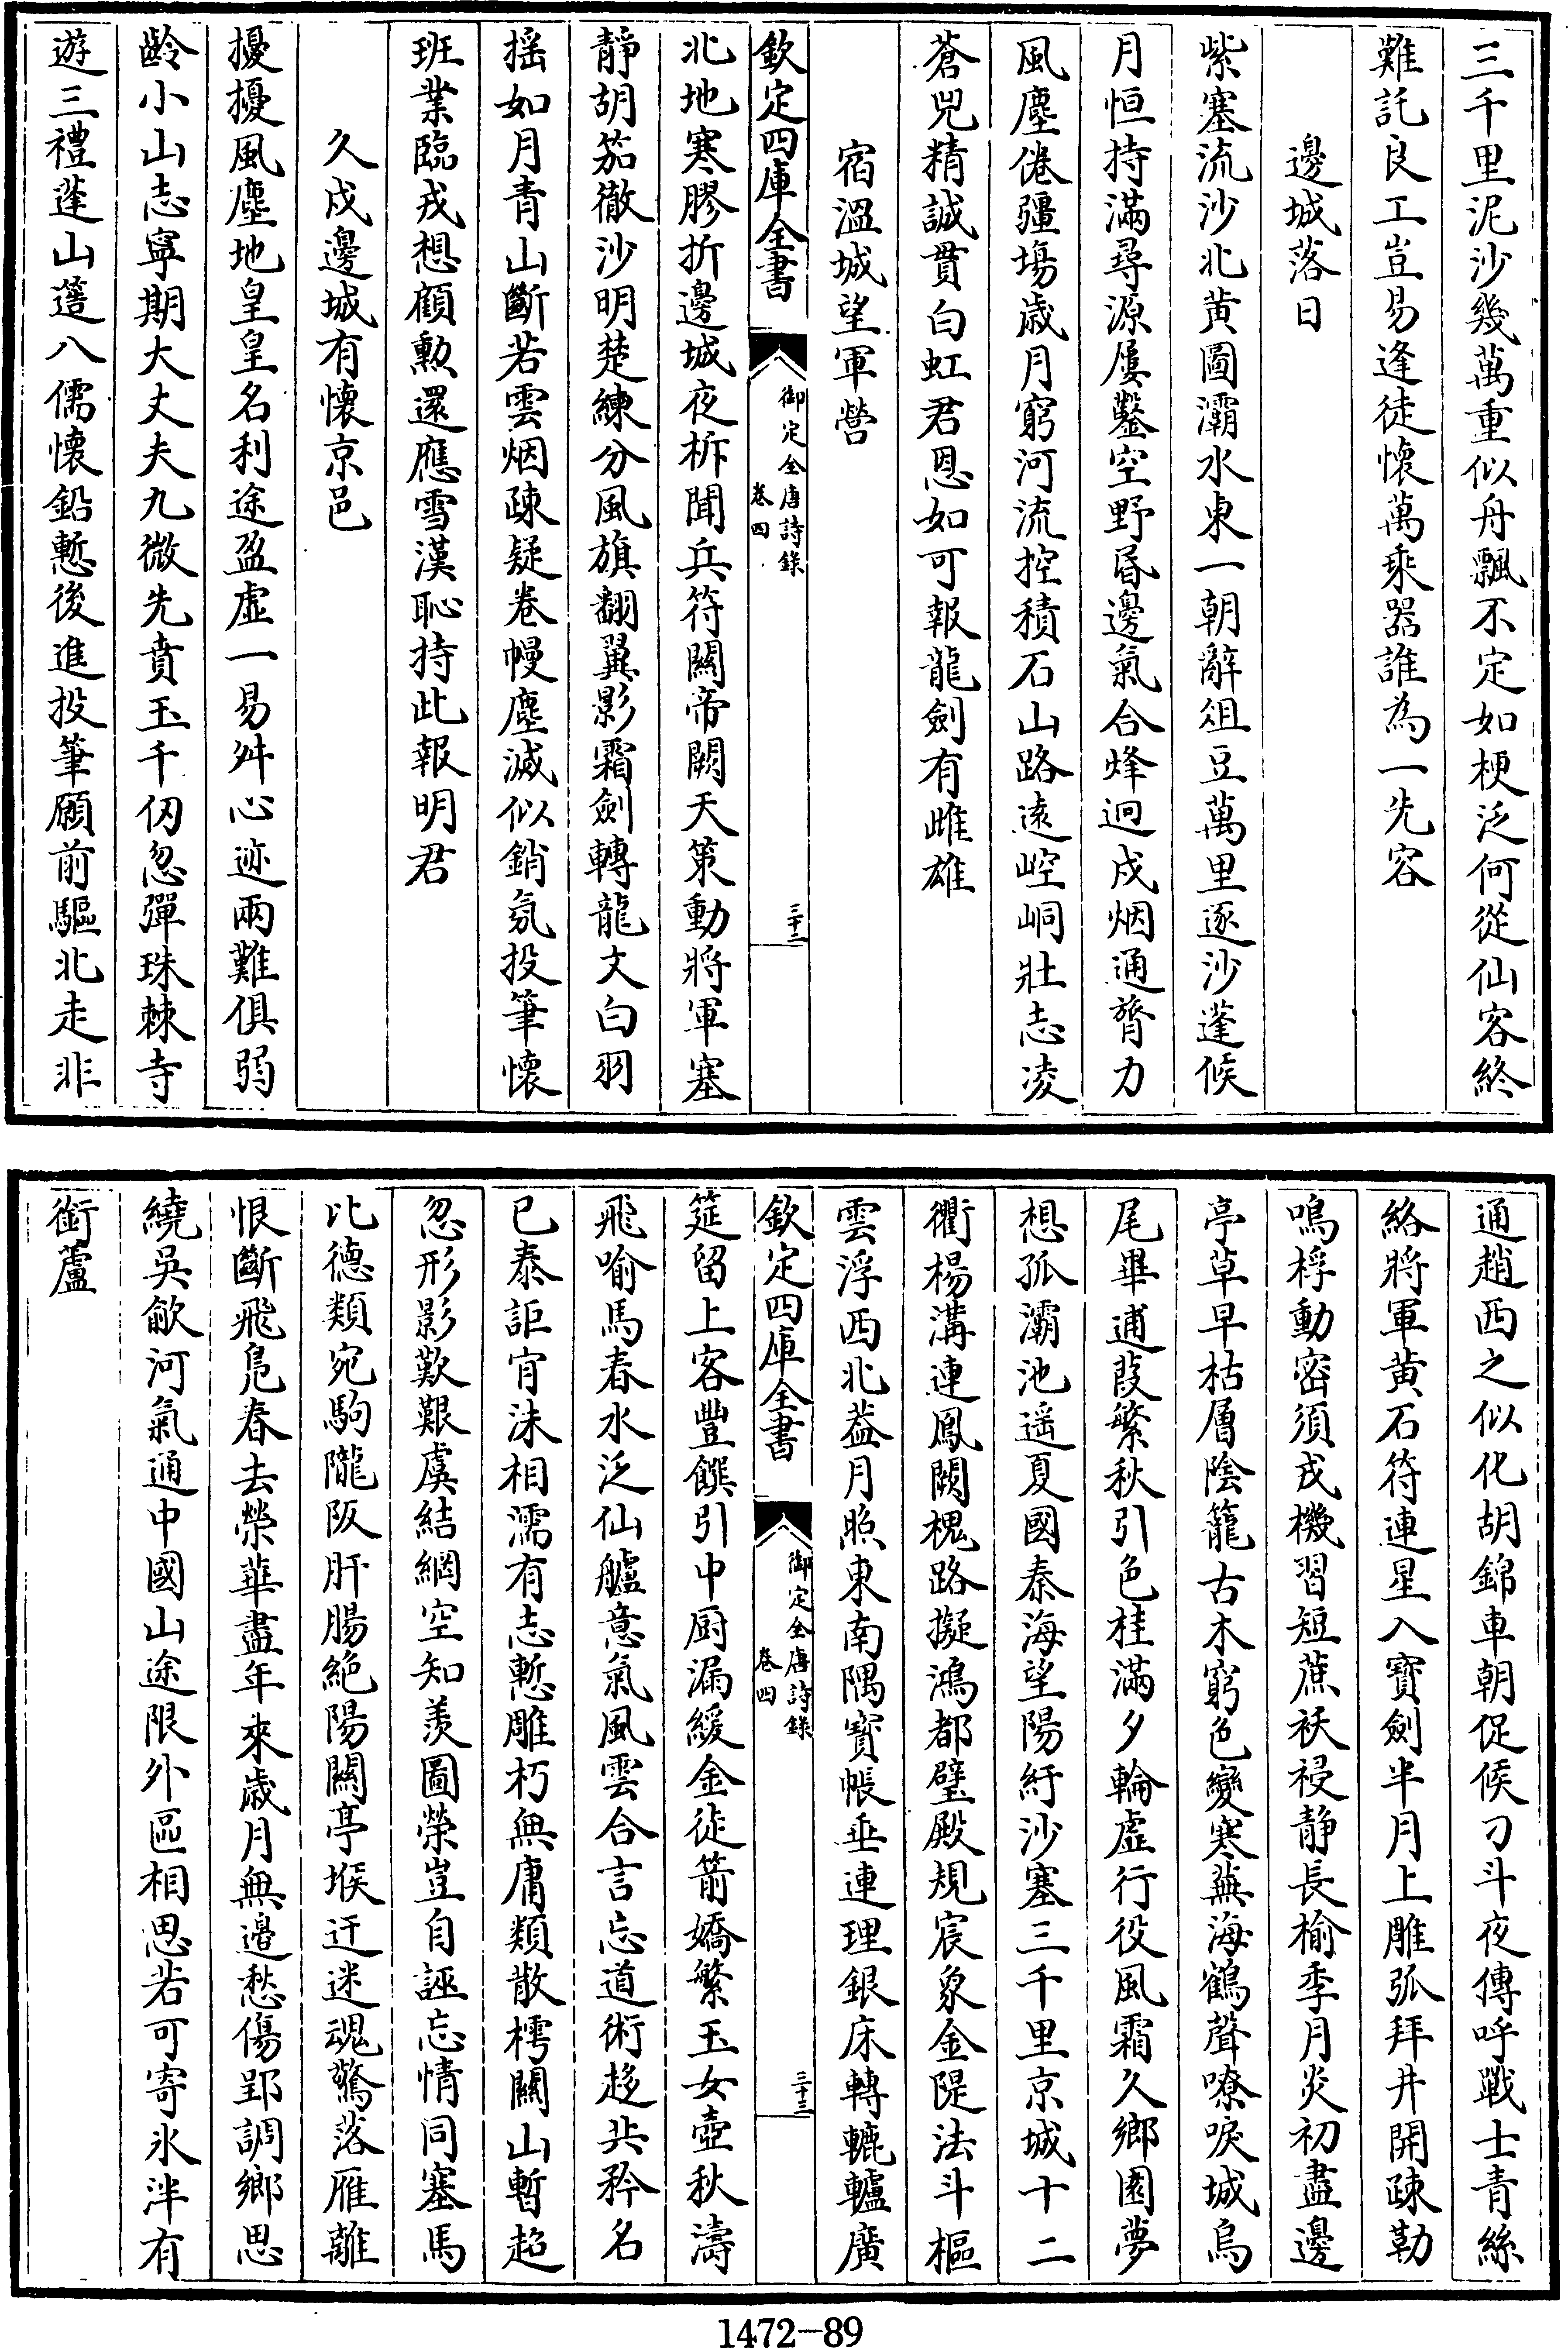 三千里泥沙幾萬重似舟飄不定如梗泛何從仙客終
難託良工豈易逢徒懷萬乘器誰為一先容
邊城落日
紫塞流沙北黄圖灞水東一朝辭俎豆萬里逐沙蓬候
月恒持滿尋源屢鑿空野昏邊氣合烽迥戍烟通膂力
風塵倦疆場歲月窮河流控積石山路遠崆峒壯志凌
蒼兕精誠貫白虹君恩如可報龍劍有雌雄
宿溫城望軍營
欽定四庫全書
御定全唐詩錄
卷四
三十二
北地寒膠折邊城夜柝聞兵符關帝闕天策動將軍塞
靜胡笳徹沙明楚練分風旗翻翼影霜劍轉龍文白羽
揺如月青山斷若雲烟疎疑卷幔塵滅似銷氛投筆懷
班業臨戎想顧勲還應雪漢恥持此報明君
久戍邊城有懷京邑
擾擾風塵地皇皇名利途盈虛一易舛心迹兩難俱弱
齡小山志寧期大丈夫九微先賁玉千仞忽彈珠棘寺
遊三禮蓬山簉八儒懷鉛慙後進投筆願前驅北走非
通趙西之似化胡錦車朝促候刁斗夜傳呼戰士青絲
絡將軍黄石符連星入寶劍半月上雕弧拜井開疎勒
鳴桴動密須戎機習短蔗祅祲静長榆季月炎初盡邊
亭草早枯層陰籠古木窮色變寒蕪海鶴聲嘹唳城烏
尾畢逋葭繁秋引色桂滿夕輪虛行役風霜久鄉園夢
想孤灞池遥夏國秦海望陽紆沙塞三千里京城十二
衢楊溝連鳳闕槐路擬鴻都璧殿規宸象金隄法斗樞
雲浮西北葢月照東南隅寶帳垂連理銀床轉轆轤廣
欽定四庫全書
御定全唐詩錄
卷四
三十三
筵留上客豐饌引中厨漏緩金徒箭嬌繁玉女壺秋濤
飛喻馬春水泛仙艫意氣風雲合言忘道術趍共矜名
已泰詎肎沫相濡有志慙雕朽無庸類散樗關山暫超
忽形影歎艱虞結網空知羡圖榮豈自誣忘情同塞馬
比德類宛駒隴阪肝腸絶陽關亭堠迂迷魂驚落雁離
恨斷飛鳧春去榮華盡年來歲月無邉愁傷郢調鄉思
繞吳歈河氣通中國山途限外區相思若可寄氷泮有
銜蘆
1472-89